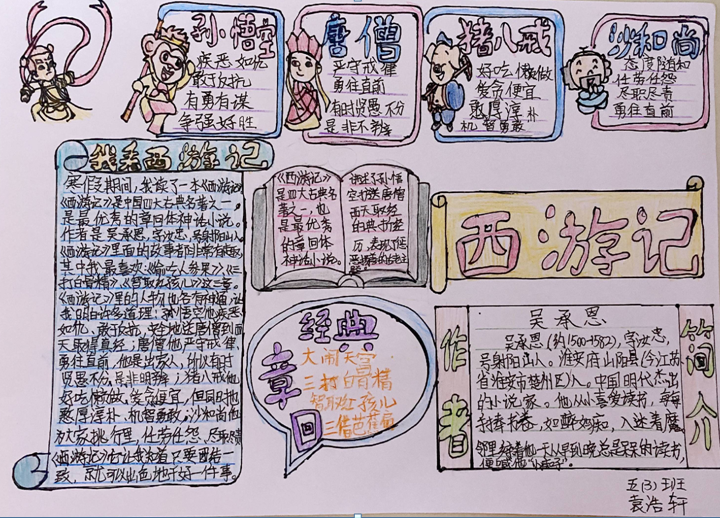 孙悟空
疾恶如仇
敢于反抗
有勇有谋
争强好胜
唐僧
严守戒律
勇往直前
但时贤愚不分
是非不辨
猪八戒
好吃懒做
爱贪便宜
憨厚淳朴
机智勇敢
沙和尚
态度随和
任劳任怨
尽职尽责
勇往直前
我看西游记
寒假期间，我读了一本《西游记》
《西游记》是中国四大古典名著之一，
是最优秀的章回体神话小说。
作者是吴承恩，字汝忠，号射阳山人。
《西游记》里面的故事都非常有趣，
其中我最喜欢《偷吃人参果》《三
打白骨精》《智取红孩儿》这三章。
《西游记》里的人物也各有神通，让
我明白许多道理：孙悟空他疾恶
如仇，敢于反抗，安全地送唐僧到西
天取得真经；唐僧他严守戒律
勇往直前，他是出家人，所以有时
贤愚不分，是非不辨；猪八戒他
好吃懒做，爱贪便宜，但同时他
憨厚淳朴，机智勇敢；沙和尚他
挑行里，任劳任怨，尽职尽责
《西游记》让我知道只要团结一
致，就可以出色地干好一件事。
《西游记》
是四大古典名
著之一，也
是最优秀
的章回体
神话小说。
讲述了孙悟
空护送唐僧
西天取经
的
历，表现了惩
恶扬善的古老主
题
西游记
经典
章回
大闹天宫
三打白骨精
智取红孩儿
三借芭蕉扇
作者
简介
吴承恩
吴承恩（约1500-1582），字汝忠，
号射阳山人。淮安府山阳县（今江苏
省淮安市楚州区）人。中国明代杰出
的小说家。他从小喜爱读书，每每
手捧书卷，如醉如痴，入迷着魔
邻里给着他一天从早到晚总是呆呆的读书，
便喊他
五（3）班
袁浩轩